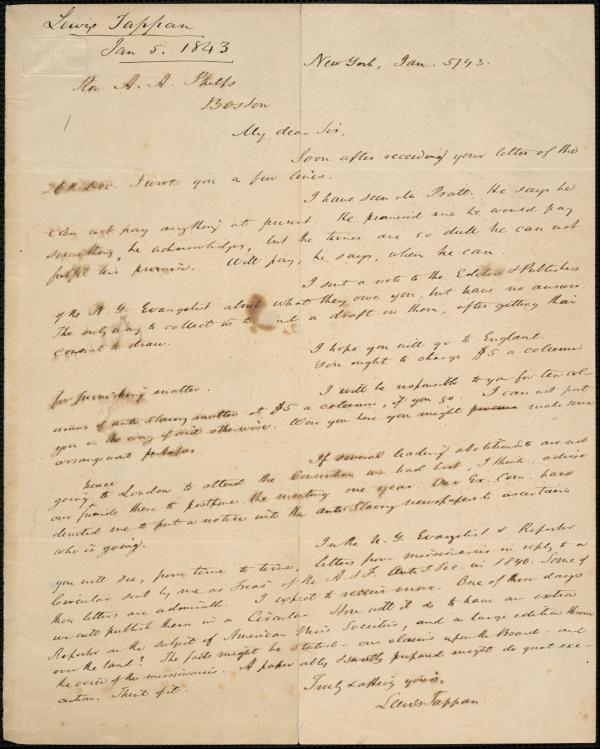 Lewis Tappan
Jan 5. 1843
New York, Jan. 5/43.
Rev. A. A. Phelps
Boston
My dear Sir,
Soon after receiving your letter of the
26th Dec. I wrote you a few lines.
I have seen Mr Pratt. He says he
can not pay anything at present. He promised me he would pay
something, he acknowledges, but the times are so dull he can not
fulfil his promise. Will pay, he says, when he can.
I sent a note to the Editor & Publishers
of the N. Y. Evangelist about what they owe you, but have no answer.
The only way to collect is to a draft on them, after getting their
consent to draw.
I hope you will go to England.
You ought to charge $5 a column
for furnishing matter.
I will be responsible to you for ten col-
umns of anti slavery matter at $5 a column, if you go. I can not put
you in the way of aid otherwise. Were you here you might make some
arrangement
If several leading abolitionists are not
hence
going to London to attend the Convention we had best, I think, advise
our friends there to postpone the meeting one year. Our Ex. Com. have
directed me to put a notice into the anti slavery newspapers to ascertain
who is going.
In the N. Y. Evangelist & Reporter
you will see, from time to time, letters from missionaries in reply to a
Circular sent by me as Treas. of the A. & F. Anti S Soc. in 1840. Some of
these letters are admirable. I expect to receive more. One of these days
we will publish them in a Circular. How will it do to have an extra
Reporter on the subject of American Miss. Societies, and a large edition thrown
over the land? The facts might be stated - our claims upon the Board - and
the voice of the missionaries. A paper ably & smartly prepared might do great exe-
cution. Think of it.
Truly & affecy yours,
Lewis Tappan.